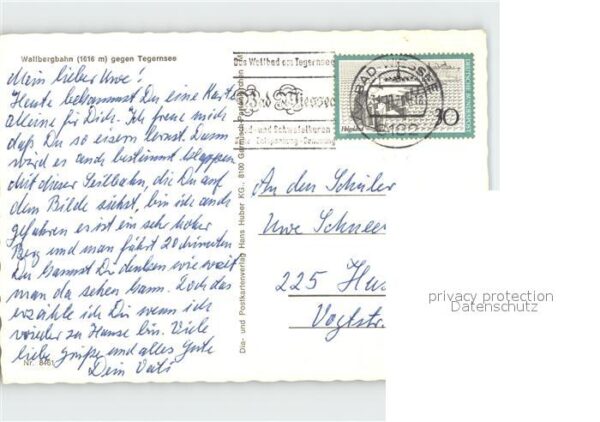 Wallbergbahn (1616 m) gegen Tegernsee
Mein lieber Uwe!
Heute bekommst Du eine Karte
alleine für Dich. Ich freue mich
daß Du so eisern lernst. Dann
wird es auch bestimmt klappen
Mit dieser Seilbahn, die Du auf
dem Bilde siehst, bin ich auch
gefahren es ist ein sehr hoher
Berg und man fährt 20 Minuten
Du kannst Dir denken wie weit
man da sehen kann. Doch das
erzähle ich Dir wenn ich
wieder zu Hause bin. Viele
liebe Grüße und alles Gute
Dein Vati
Nr. 8461
Dia- und Postkartenverlag Hans Huber KG., 8100 Garmisch-Partenkirchen
Das Weltbad am Tegernsee
Bad Wiessee
Jod- und Schwefelkuren
Entspannung - Genesung
BAD WIESSEE
8182
DEUTSCHE BUNDESPOST
Helgoland
30
An den Schüler
Uwe Schnee
225 Hus
Vogtstr.
privacy protection
Datenschutz